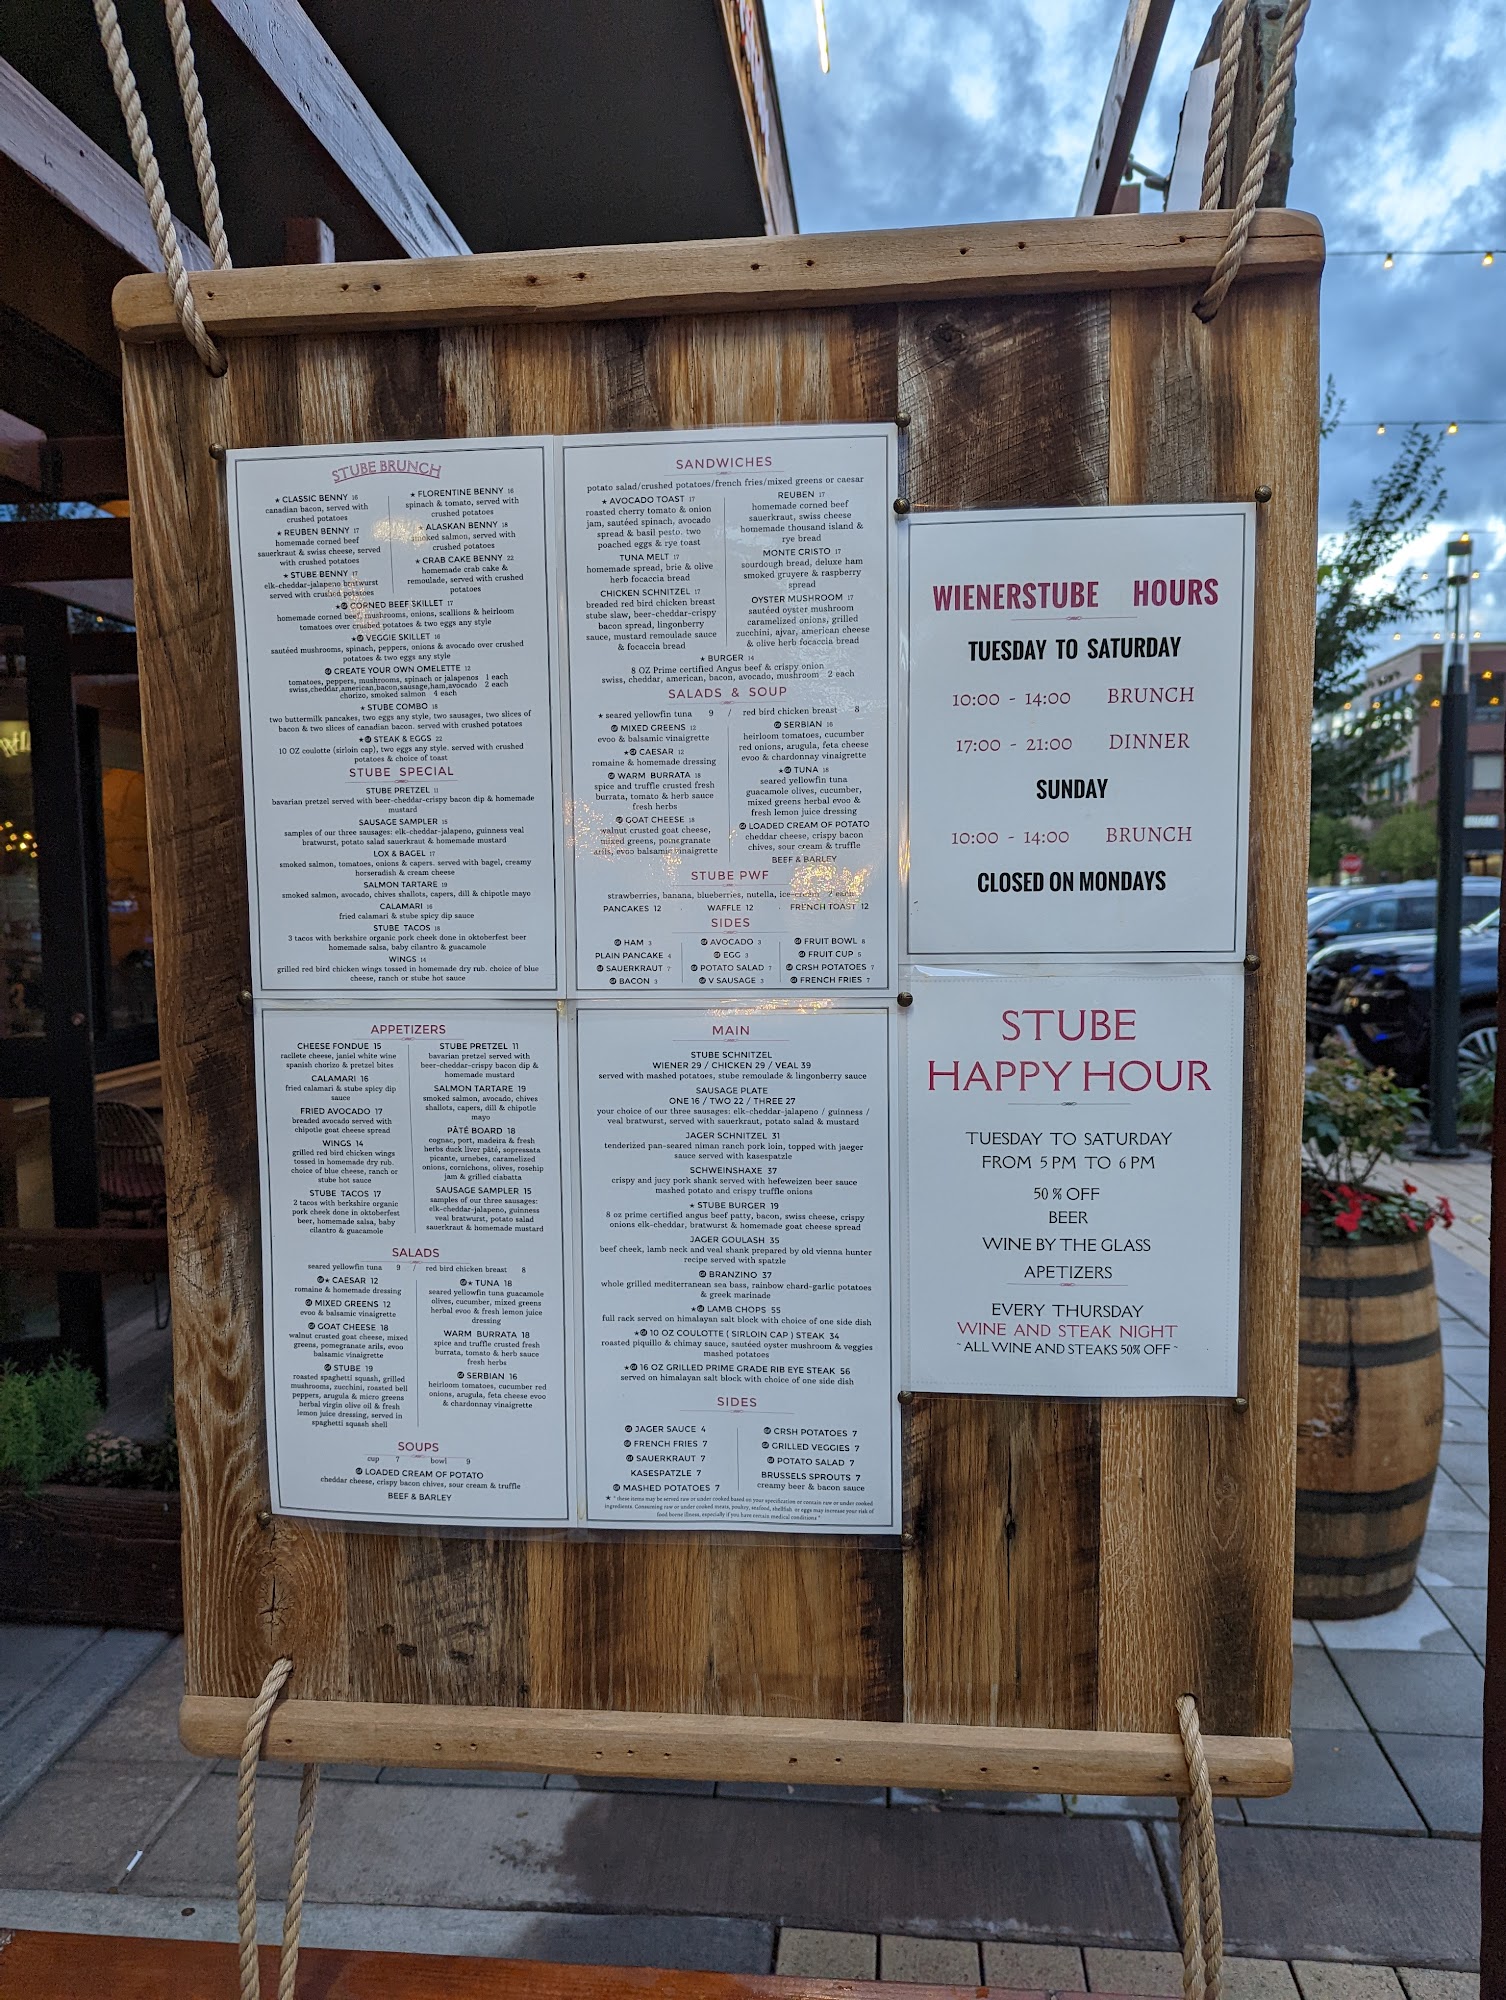 STUBE BRUNCH
★ CLASSIC BENNY 16
canadian bacon, served with
crushed potatoes
★ REUBEN BENNY 17
homemade corned beef
sauerkraut & swiss cheese, served
with crushed potatoes
★ STUBE BENNY 17
elk-cheddar-jalapeno bratwurst
served with crushed potatoes
★ FLORENTINE BENNY 16
spinach & tomato, served with
crushed potatoes
★ ALASKAN BENNY 18
smoked salmon, served with
crushed potatoes
★ CRAB CAKE BENNY 22
homemade crab cake &
remoulade, served with crushed
potatoes
★ CORNED BEEF SKILLET 17
homemade corned beef, mushrooms, onions, scallions & heirloom
tomatoes over crushed potatoes & two eggs any style
★ VEGGIE SKILLET 16
sautéed mushrooms, spinach, peppers, onions & avocado over crushed
potatoes & two eggs any style
CREATE YOUR OWN OMELETTE 12
tomatoes, peppers, mushrooms, spinach or jalapenos 1 each
swiss,cheddar,american,bacon,sausage,ham,avocado 2 each
chorizo, smoked salmon 4 each
★ STUBE COMBO 18
two buttermilk pancakes, two eggs any style, two sausages, two slices of
bacon & two slices of canadian bacon. served with crushed potatoes
★ STEAK & EGGS 22
10 OZ coulotte (sirloin cap), two eggs any style. served with crushed
potatoes & choice of toast
STUBE SPECIAL
STUBE PRETZEL 11
bavarian pretzel served with beer-cheddar-crispy bacon dip & homemade
mustard
SAUSAGE SAMPLER 15
samples of our three sausages: elk-cheddar-jalapeno, guinness veal
bratwurst, potato salad sauerkraut & homemade mustard
LOX & BAGEL 17
smoked salmon, tomatoes, onions & capers. served with bagel, creamy
horseradish & cream cheese
SALMON TARTARE 19
smoked salmon, avocado, chives shallots, capers, dill & chipotle mayo
CALAMARI 16
fried calamari & stube spicy dip sauce
STUBE TACOS 18
3 tacos with berkshire organic pork cheek done in oktoberfest beer
homemade salsa, baby cilantro & guacamole
WINGS 14
grilled red bird chicken wings tossed in homemade dry rub. choice of blue
cheese, ranch or stube hot sauce
SANDWICHES
potato salad/crushed potatoes/french fries/mixed greens or caesar
★ AVOCADO TOAST 17
roasted cherry tomato & onion
jam, sautéed spinach, avocado
spread & basil pesto. two
poached eggs & rye toast
TUNA MELT 17
homemade spread, brie & olive
herb focaccia bread
CHICKEN SCHNITZEL 17
breaded red bird chicken breast
stube slaw, beer-cheddar-crispy
bacon spread, lingonberry
sauce, mustard remoulade sauce
& focaccia bread
REUBEN 17
homemade corned beef
sauerkraut, swiss cheese
homemade thousand island &
rye bread
MONTE CRISTO 17
sourdough bread, deluxe ham
smoked gruyere & raspberry
spread
OYSTER MUSHROOM 17
sautéed oyster mushroom
caramelized onions, grilled
zucchini, ajvar, american cheese
& olive herb focaccia bread
★ BURGER 14
8 OZ Prime certified Angus beef & crispy onion
swiss, cheddar, american, bacon, avocado, mushroom 2 each
SALADS & SOUP
★ seared yellowfin tuna 9 / red bird chicken breast 8
MIXED GREENS 12
evoo & balsamic vinaigrette
★ CAESAR 12
romaine & homemade dressing
WARM BURRATA 18
spice and truffle crusted fresh
burrata, tomato & herb sauce
fresh herbs
GOAT CHEESE 18
walnut crusted goat cheese,
mixed greens, pomegranate
arils, evoo balsamic vinaigrette
SERBIAN 16
heirloom tomatoes, cucumber
red onions, arugula, feta cheese
evoo & chardonnay vinaigrette
★ TUNA 18
seared yellowfin tuna
guacamole olives, cucumber,
mixed greens herbal evoo &
fresh lemon juice dressing
LOADED CREAM OF POTATO
cheddar cheese, crispy bacon
chives, sour cream & truffle
BEEF & BARLEY
STUBE PWF
strawberries, banana, blueberries, nutella, ice-cream 2 each
PANCAKES 12 WAFFLE 12 FRENCH TOAST 12
SIDES
HAM 3
PLAIN PANCAKE 4
SAUERKRAUT 7
BACON 3
AVOCADO 3
EGG 3
POTATO SALAD 7
V SAUSAGE 3
FRUIT BOWL 8
FRUIT CUP 5
CRSH POTATOES 7
FRENCH FRIES 7
WIENERSTUBE HOURS
TUESDAY TO SATURDAY
10:00 - 14:00 BRUNCH
17:00 - 21:00 DINNER
SUNDAY
10:00 - 14:00 BRUNCH
CLOSED ON MONDAYS
APPETIZERS
CHEESE FONDUE 15
racllete cheese, janiel white wine
spanish chorizo & pretzel bites
CALAMARI 16
fried calamari & stube spicy dip
sauce
FRIED AVOCADO 17
breaded avocado served with
chipotle goat cheese spread
WINGS 14
grilled red bird chicken wings
tossed in homemade dry rub.
choice of blue cheese, ranch or
stube hot sauce
STUBE TACOS 17
2 tacos with berkshire organic
pork cheek done in oktoberfest
beer, homemade salsa, baby
cilantro & guacamole
STUBE PRETZEL 11
bavarian pretzel served with
beer-cheddar-crispy bacon dip &
homemade mustard
SALMON TARTARE 19
smoked salmon, avocado, chives
shallots, capers, dill & chipotle
mayo
PÂTÉ BOARD 18
cognac, port, madeira & fresh
herbs duck liver pâté, sopressata
picante, urnebes, caramelized
onions, cornichons, olives, rosehip
jam & grilled ciabatta
SAUSAGE SAMPLER 15
samples of our three sausages:
elk-cheddar-jalapeno, guinness
veal bratwurst, potato salad
sauerkraut & homemade mustard
SALADS
seared yellowfin tuna 9 / red bird chicken breast 8
★ CAESAR 12
romaine & homemade dressing
MIXED GREENS 12
evoo & balsamic vinaigrette
GOAT CHEESE 18
walnut crusted goat cheese, mixed
greens, pomegranate arils, evoo
balsamic vinaigrette
STUBE 19
roasted spaghetti squash, grilled
mushrooms, zucchini, roasted bell
peppers, arugula & micro greens
herbal virgin olive oil & fresh
lemon juice dressing, served in
spaghetti squash shell
★ TUNA 18
seared yellowfin tuna guacamole
olives, cucumber, mixed greens
herbal evoo & fresh lemon juice
dressing
WARM BURRATA 18
spice and truffle crusted fresh
burrata, tomato & herb sauce
fresh herbs
SERBIAN 16
heirloom tomatoes, cucumber red
onions, arugula, feta cheese evoo
& chardonnay vinaigrette
SOUPS
cup 7 bowl 9
LOADED CREAM OF POTATO
cheddar cheese, crispy bacon chives, sour cream & truffle
BEEF & BARLEY
MAIN
STUBE SCHNITZEL
WIENER 29 / CHICKEN 29 / VEAL 39
served with mashed potatoes, stube remoulade & lingonberry sauce
SAUSAGE PLATE
ONE 16 / TWO 22 / THREE 27
your choice of our three sausages: elk-cheddar-jalapeno / guinness /
veal bratwurst, served with sauerkraut, potato salad & mustard
JAGER SCHNITZEL 31
tenderized pan-seared niman ranch pork loin, topped with jaeger
sauce served with kasespatzle
SCHWEINSHAXE 37
crispy and jucy pork shank served with hefeweizen beer sauce
mashed potato and crispy truffle onions
★ STUBE BURGER 19
8 oz prime certified angus beef patty, bacon, swiss cheese, crispy
onions elk-cheddar, bratwurst & homemade goat cheese spread
JAGER GOULASH 35
beef cheek, lamb neck and veal shank prepared by old vienna hunter
recipe served with spatzle
BRANZINO 37
whole grilled mediterranean sea bass, rainbow chard-garlic potatoes
& greek marinade
★ LAMB CHOPS 55
full rack served on himalayan salt block with choice of one side dish
★ 10 OZ COULOTTE ( SIRLOIN CAP ) STEAK 34
roasted piquillo & chimay sauce, sautéed oyster mushroom & veggies
mashed potatoes
★ 16 OZ GRILLED PRIME GRADE RIB EYE STEAK 56
served on himalayan salt block with choice of one side dish
SIDES
JAGER SAUCE 4
FRENCH FRIES 7
SAUERKRAUT 7
KASESPATZLE 7
MASHED POTATOES 7
CRSH POTATOES 7
GRILLED VEGGIES 7
POTATO SALAD 7
BRUSSELS SPROUTS 7
creamy beer & bacon sauce
★ " these items may be served raw or under cooked based on your specification or contain raw or under cooked
ingredients. Consuming raw or under cooked meats, poultry, seafood, shellfish or eggs may increase your risk of
food borne illness, especially if you have certain medical conditions "
STUBE
HAPPY HOUR
TUESDAY TO SATURDAY
FROM 5 PM TO 6 PM
50 % OFF
BEER
WINE BY THE GLASS
APETIZERS
EVERY THURSDAY
WINE AND STEAK NIGHT
~ ALL WINE AND STEAKS 50% OFF ~